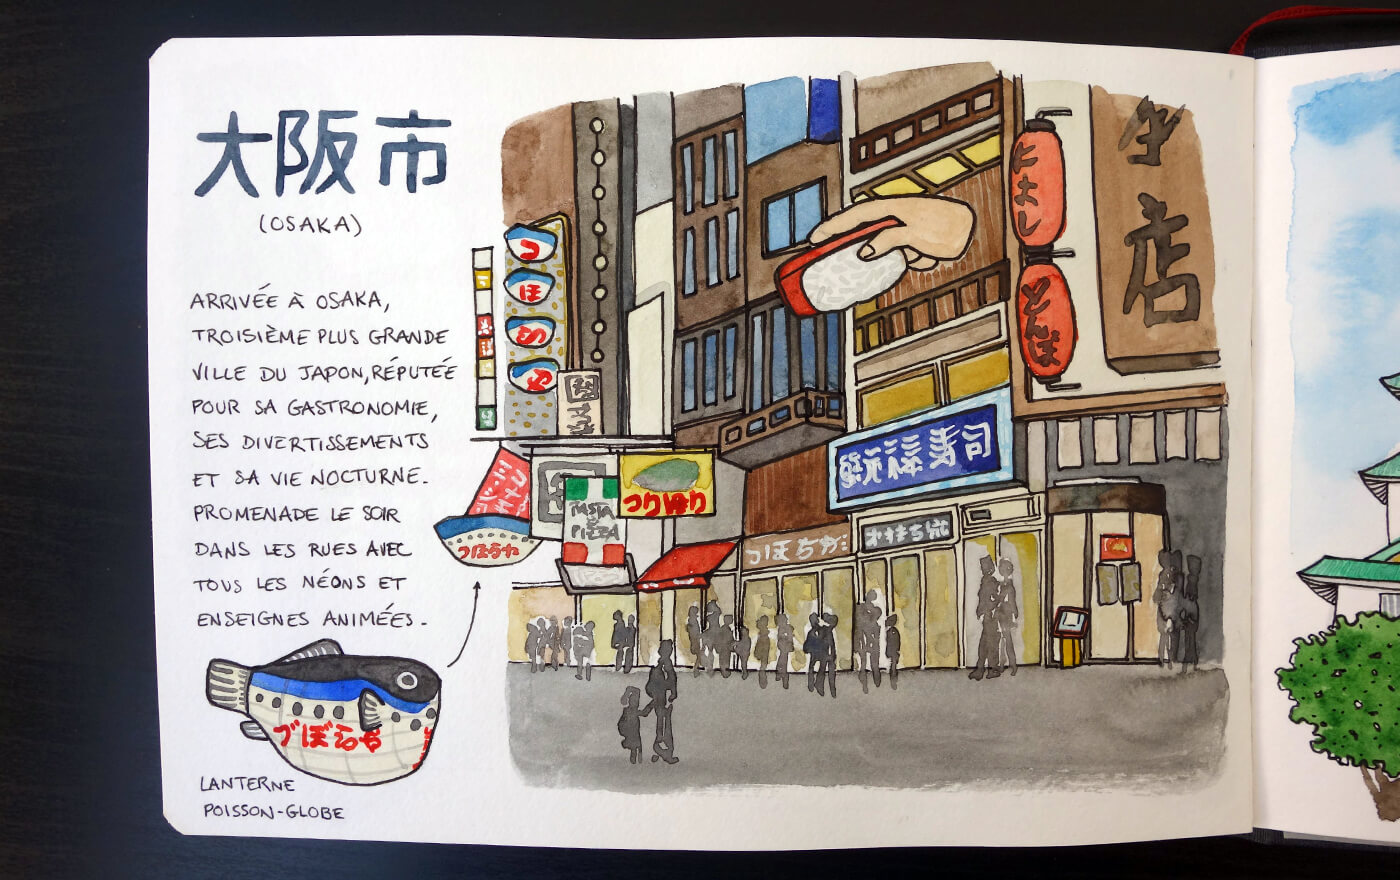 大阪市
(OSAKA)
ARRIVÉE À OSAKA,
TROISIÈME PLUS GRANDE
VILLE DU JAPON, RÉPUTÉE
POUR SA GASTRONOMIE,
SES DIVERTISSEMENTS
ET SA VIE NOCTURNE.
PROMENADE LE SOIR
DANS LES RUES AVEC
TOUS LES NÉONS ET
ENSEIGNES ANIMÉES.
づぼらや
LANTERNE
POISSON-GLOBE
つぼらや
PASTA
&
PIZZA
寿司
とんぼ
店